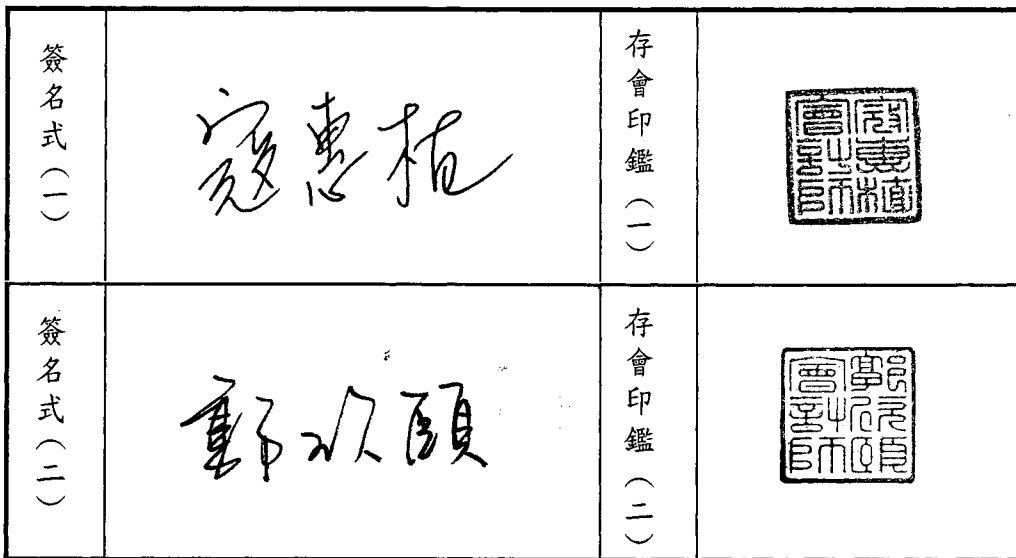 簽名式（一）
寇惠植
存會印鑑（一）
寇惠植
會計師
簽名式（二）
郭欣頤
存會印鑑（二）
郭欣頤
會計師